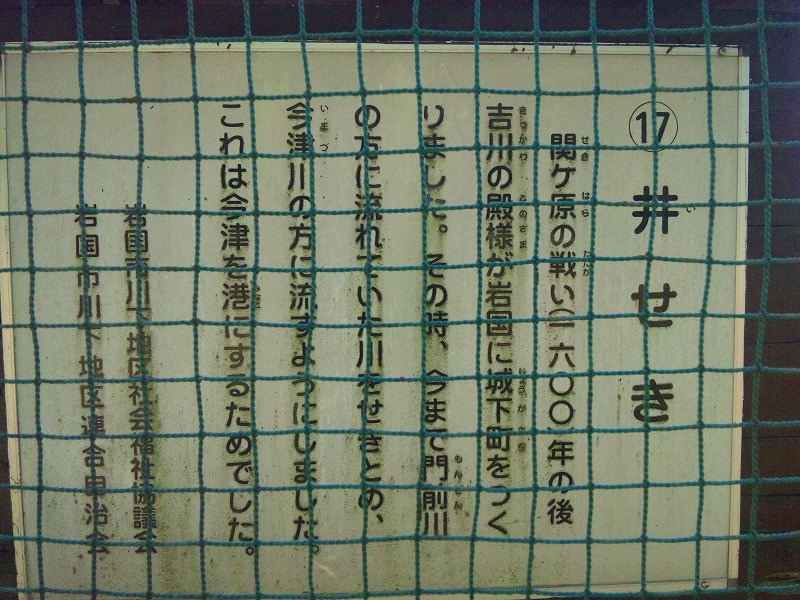 ⑰ 井せき
関ケ原の戦い(一六〇〇年の後
吉川の殿様が岩国に城下町をつく
りました。その時、今まで門前川
の方に流れていた川をせきとめ、
今津川の方に流すようにしました。
これは今津を港にするためでした。
岩国市川下地区社会福祉協議会
岩国市川下地区連合自治会